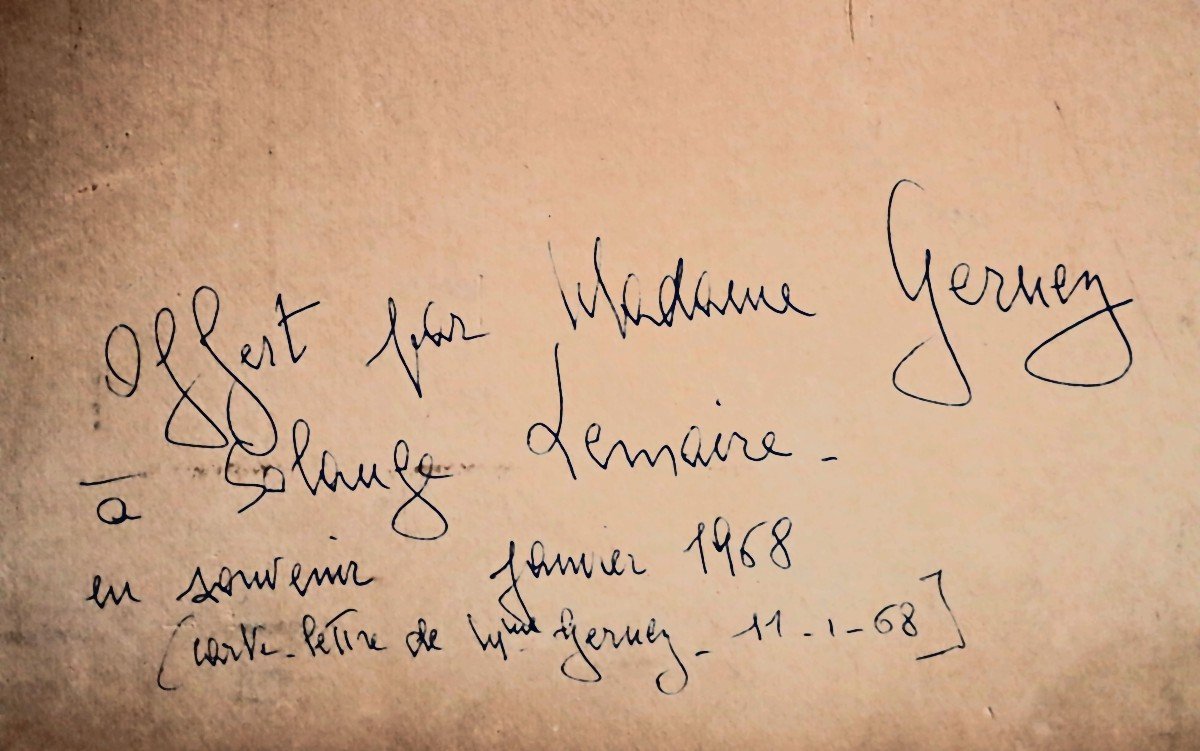 Offert par Madame Gernez
à Solange Lemaire -
en souvenir janvier 1968
(carte-lettre de Mme Gernez - 11-1-68]